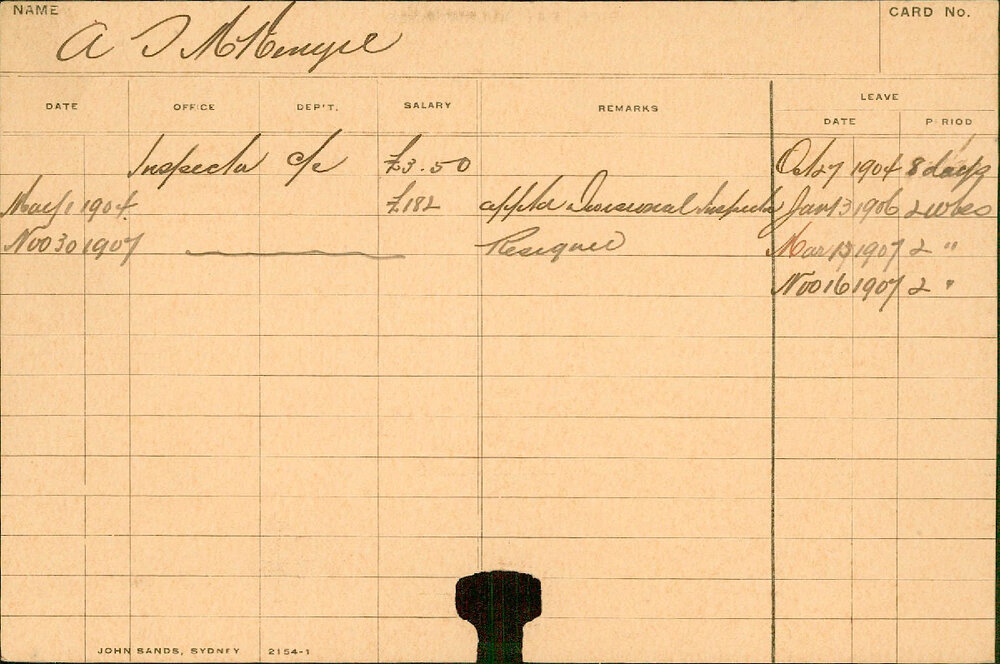 NAME
CARD No.
A J McKenzie
DATE OFFICE DEP'T. SALARY REMARKS LEAVE
DATE PERIOD
Inspector c/c £3.50 Oct 27 1904 8 days
May 1 1904 £182 apptd Divisional Inspector Jan 13 1906 2 wks
Nov 30 1907 Resigned Mar 1907 2 "
Nov 16 1907 2 "
JOHN SANDS, SYDNEY 2154-1